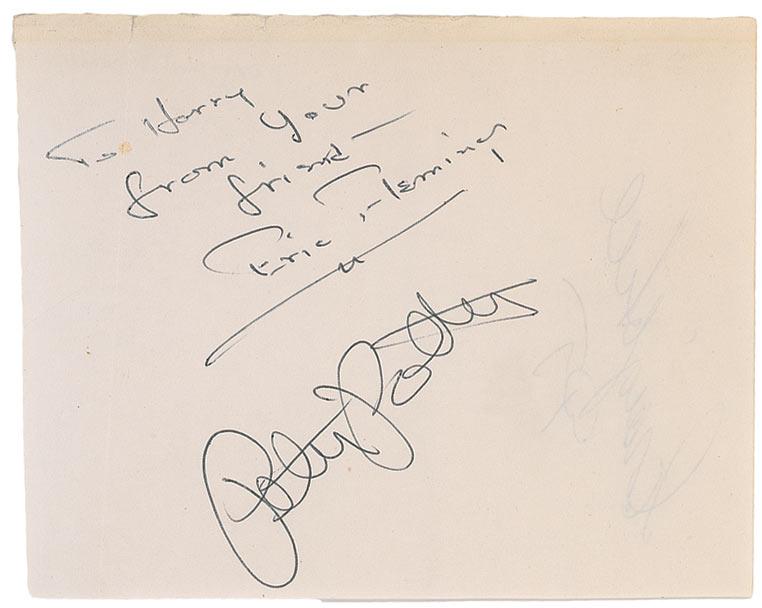 To Harry
from your
friend —
Eric Fleming
Peter Potter